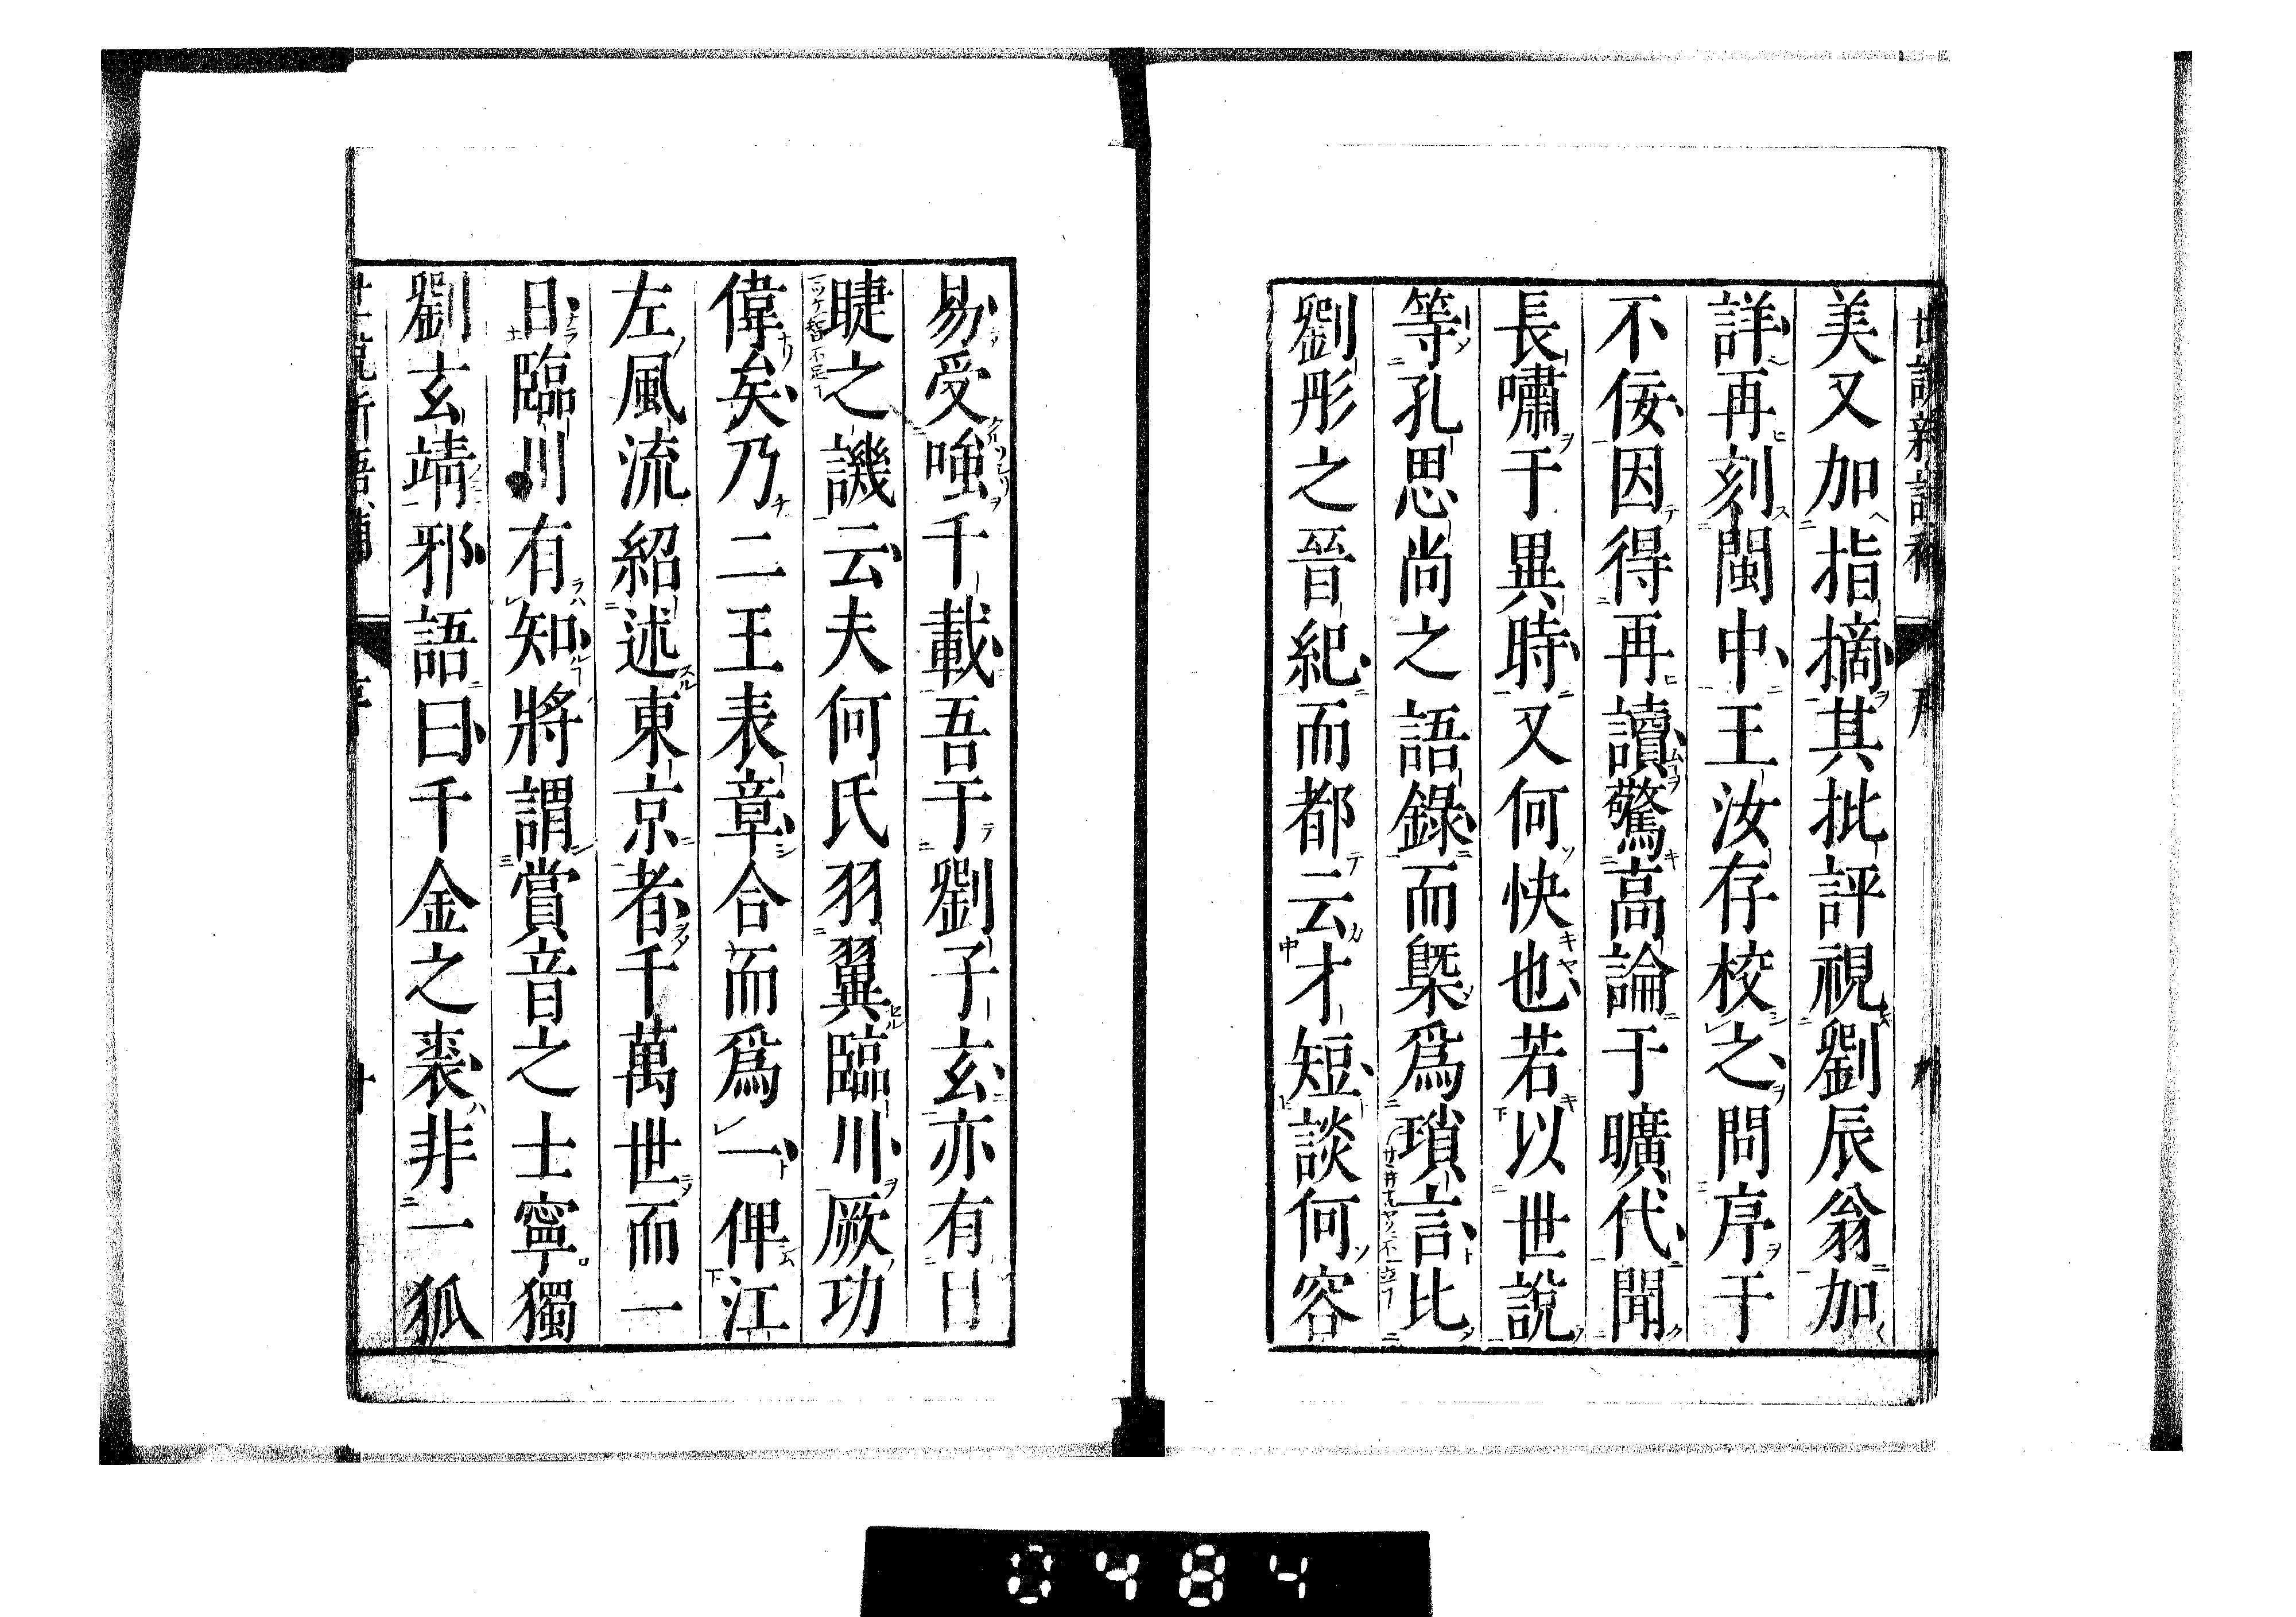 美又加指摘其批評視劉辰翁加
詳再刻閩中王汝存校之問序于
不佞因得再讀驚高論于曠代聞
長嘯于異時又何快也若以世說
等孔思尚之語錄而槩爲瑣言比
劉彤之晉紀而都云才短談何容
易受嗤千載吾于劉子玄亦有日
睫之譏云夫何氏羽翼臨川厥功
偉矣乃二王表章合而爲一俾江
左風流紹述東京者千萬世而一
日臨川有知將謂賞音之士寧獨
劉玄靖邪語曰千金之裘非一狐
0484